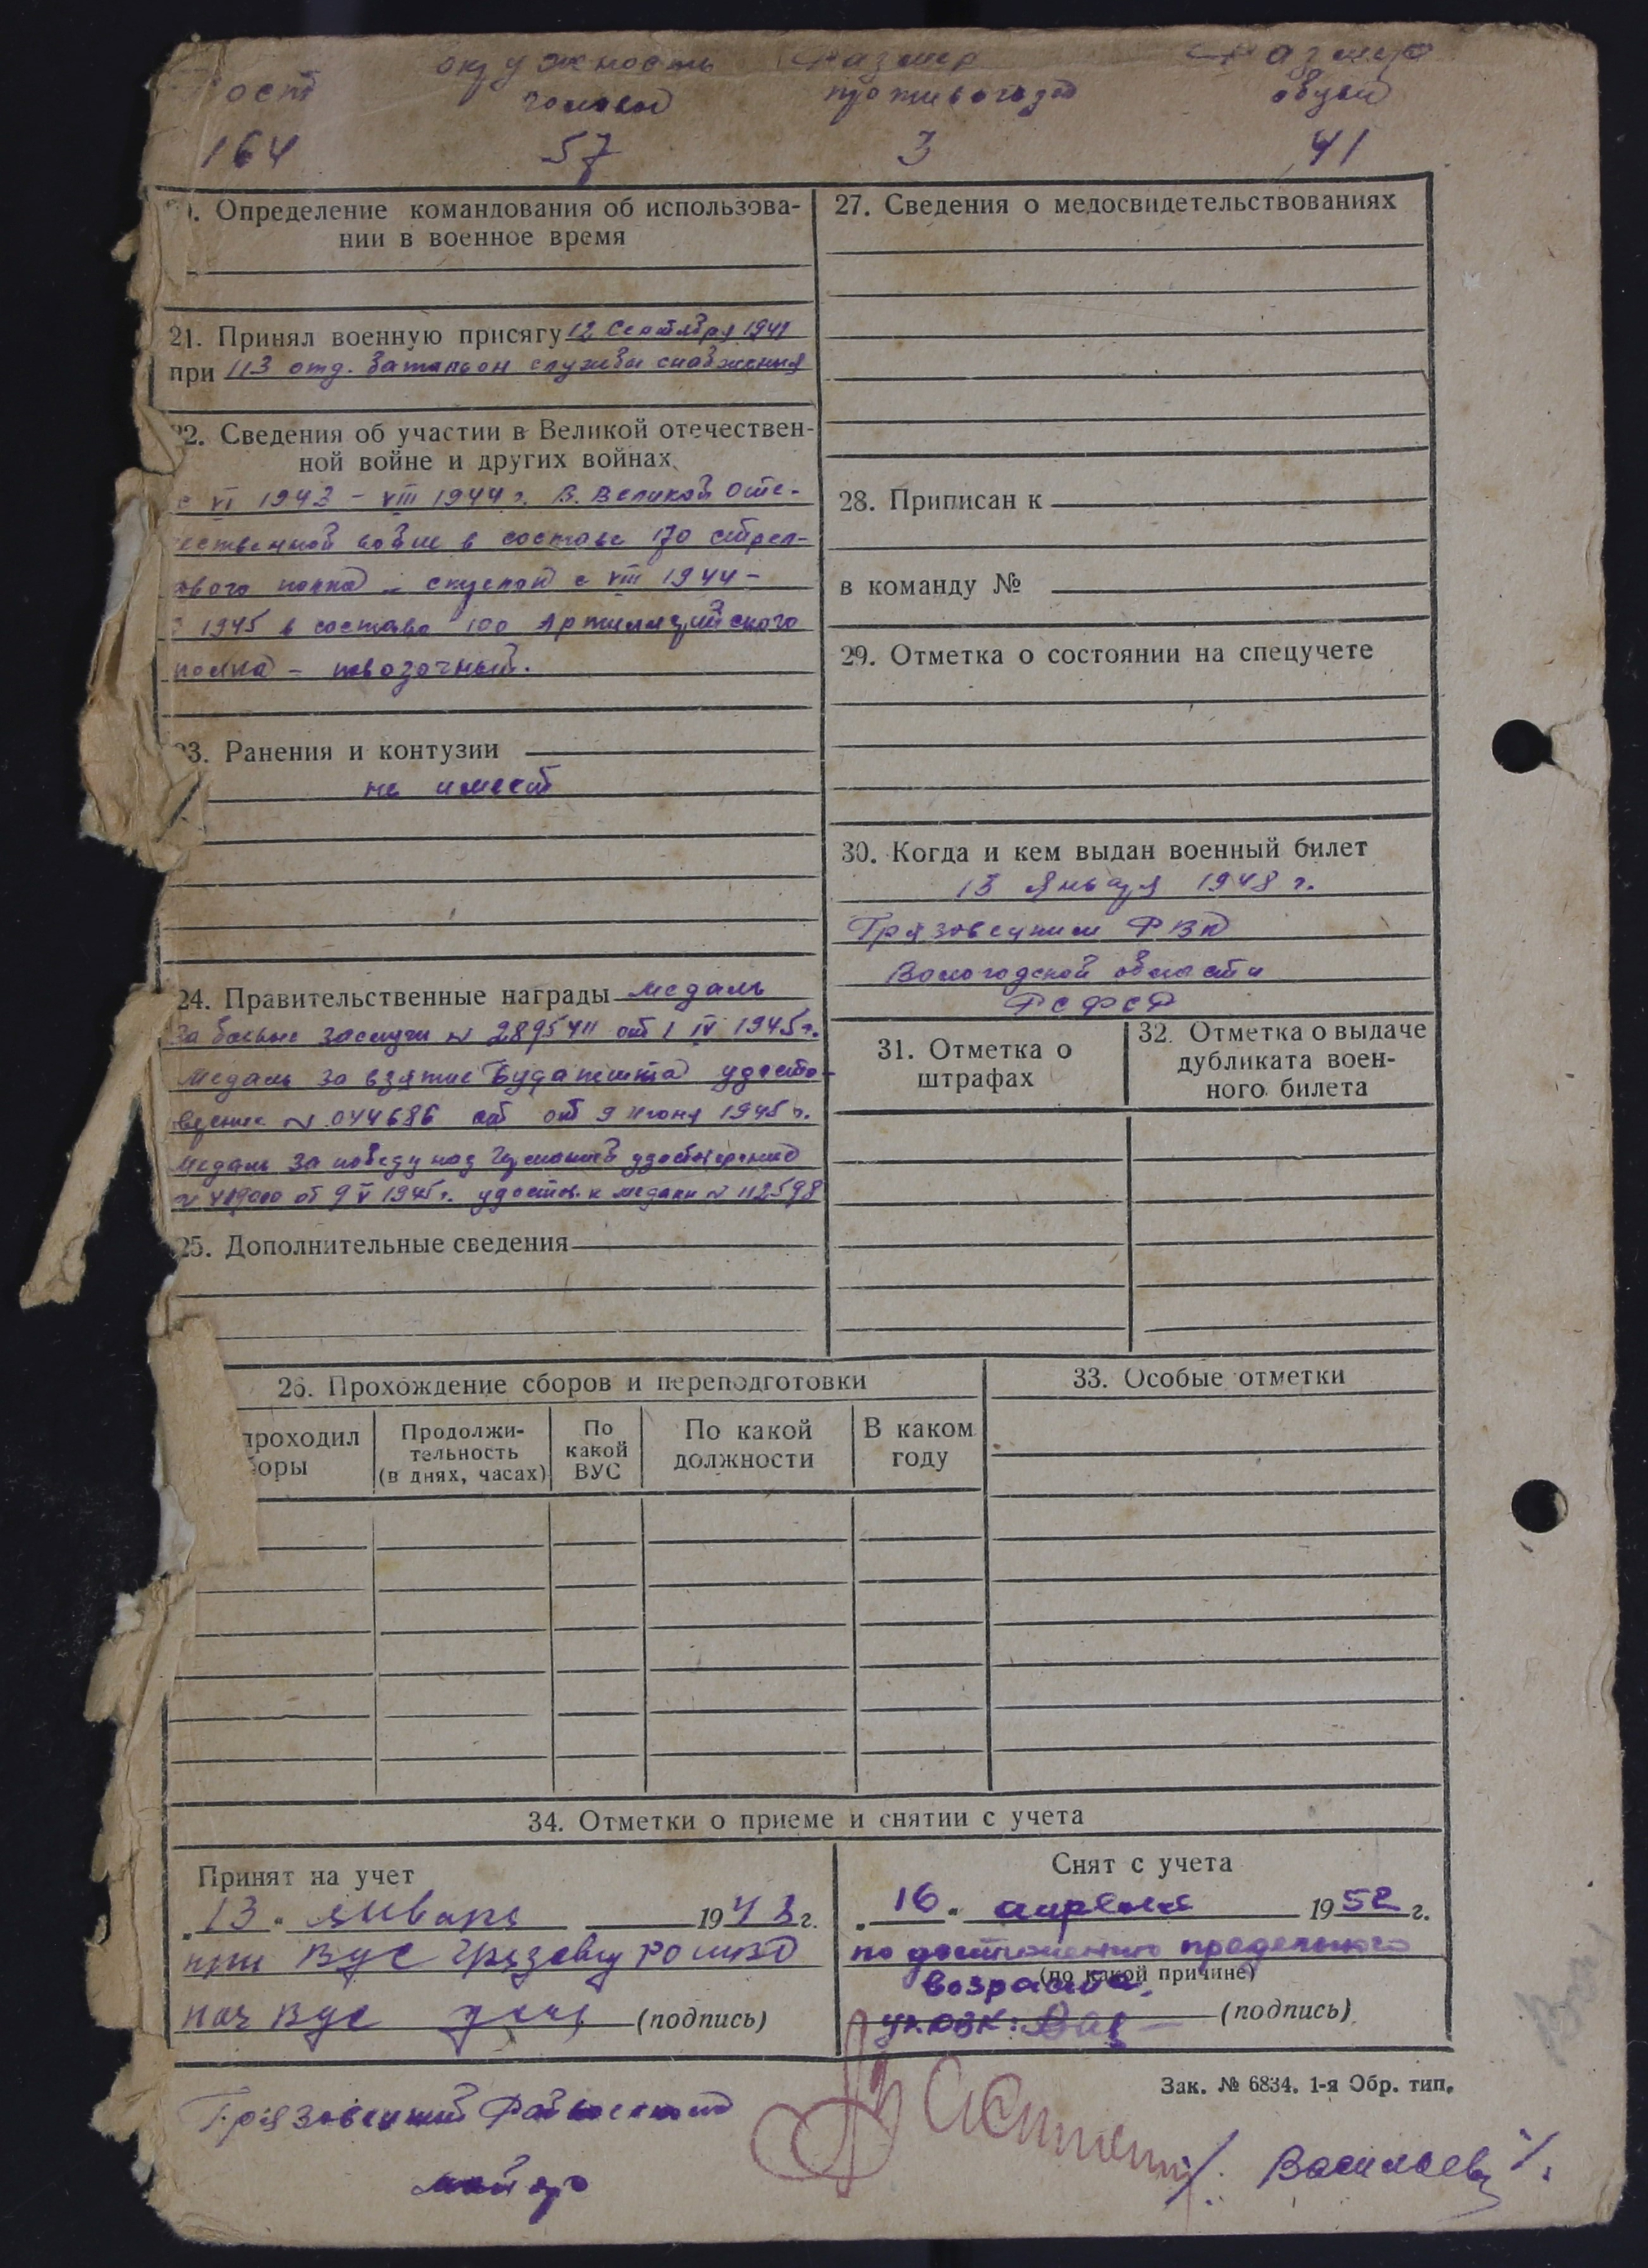 окружность размер размер
рост головы противогаза обуви
164 57 3 41
. Определение командования об использова-
нии в военное время
21. Принял военную присягу 12 Сентября 1941
при 113 отд. батальон службы снабжения
22. Сведения об участии в Великой отечествен-
ной войне и других войнах
с VI 1943 – VIII 1944 г. В. Великой Оте-
чественной войне в составе 170 стрел-
кового полка с VIII 1944 –
1945 в составе 100 Артиллерийского
полка – повозочный.
23. Ранения и контузии
не имеет
24. Правительственные награды медаль
за боевые заслуги № 2895411 от 1 IV 1945 г.
Медаль за взятие Будапешта удосто-
верение № 044686 от 9 Июня 1945 г.
Медаль за победу над Германией удостоверение
от 9 V 1945 г. удостов. к медали № 112598
25. Дополнительные сведения
26. Прохождение сборов и переподготовки
проходил
боры
Продолжи-
тельность
(в днях, часах)
По
какой
ВУС
По какой
должности
В каком
году
27. Сведения о медосвидетельствованиях
28. Приписан к
в команду №
29. Отметка о состоянии на спецучете
30. Когда и кем выдан военный билет
13 Января 1948 г.
Грязовецким РВК
Вологодской области
РСФСР
31. Отметка о
штрафах
32. Отметка о выдаче
дубликата воен-
ного билета
33. Особые отметки
34. Отметки о приеме и снятии с учета
Принят на учет
„13“ января 1948 г.
при ВУС
нач ВУС (подпись)
Снят с учета
„16“ апреля 1952 г.
по достижению предельного
(по какой причине)
возраста.
(подпись)
Зак. № 6834. 1-я Обр. тип.
Грязовецкий Райвоенком
майор
/. Васильев /.